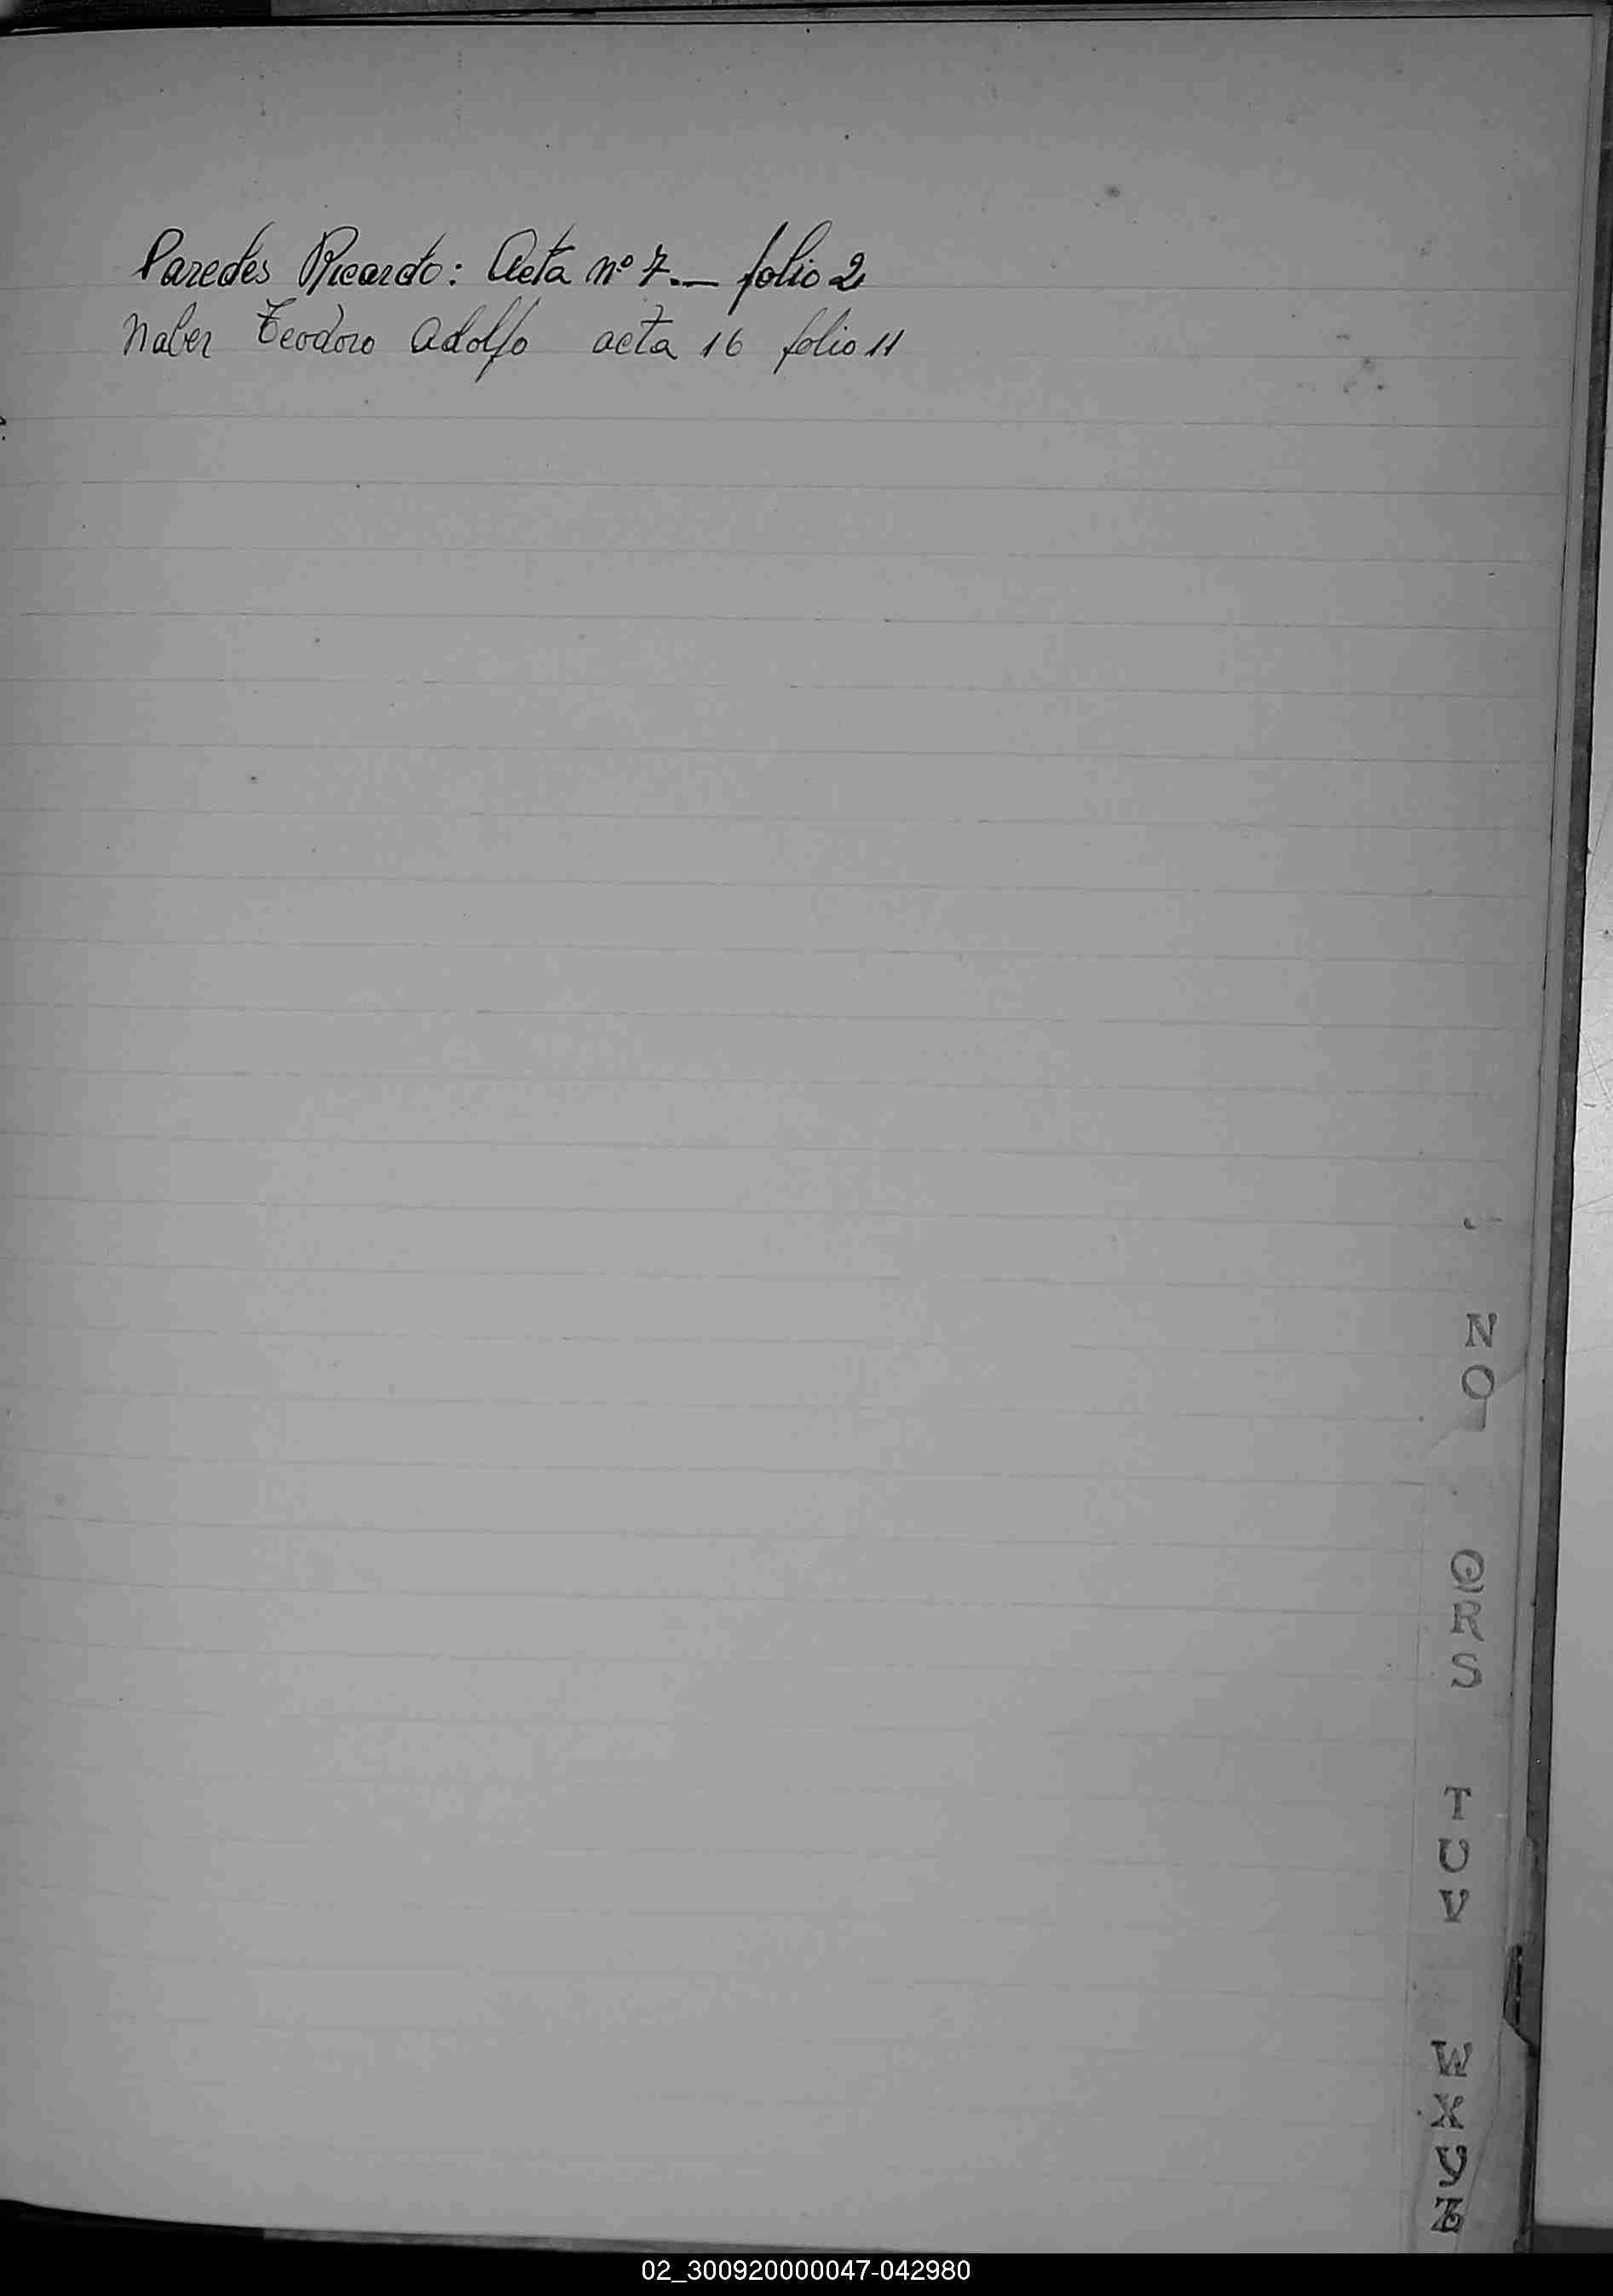 Paredes Ricardo: Acta nº 7.— folio 2
Naber Teodoro Adolfo acta 16 folio 11
N
O
Q
R
S
T
U
V
W
X
Y
Z
02_300920000047-042980